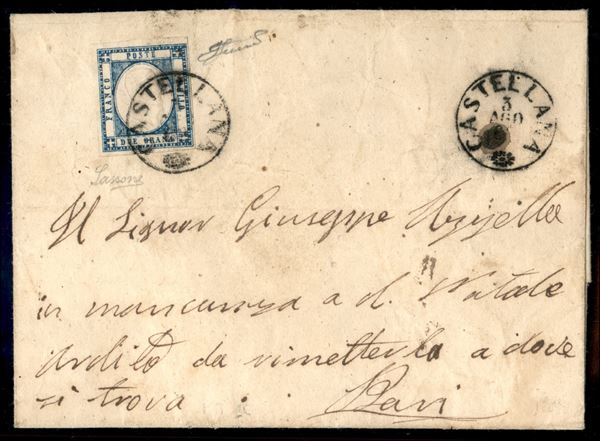 FRANCO POSTE BOLLO
DUE GRANA
CASTELLANA
CASTELLANA
3
AGO
Sassone
Al Signor Giuseppe
in mancanza a d. Natale
Ardito da rimetterla a dove
si trova Bari